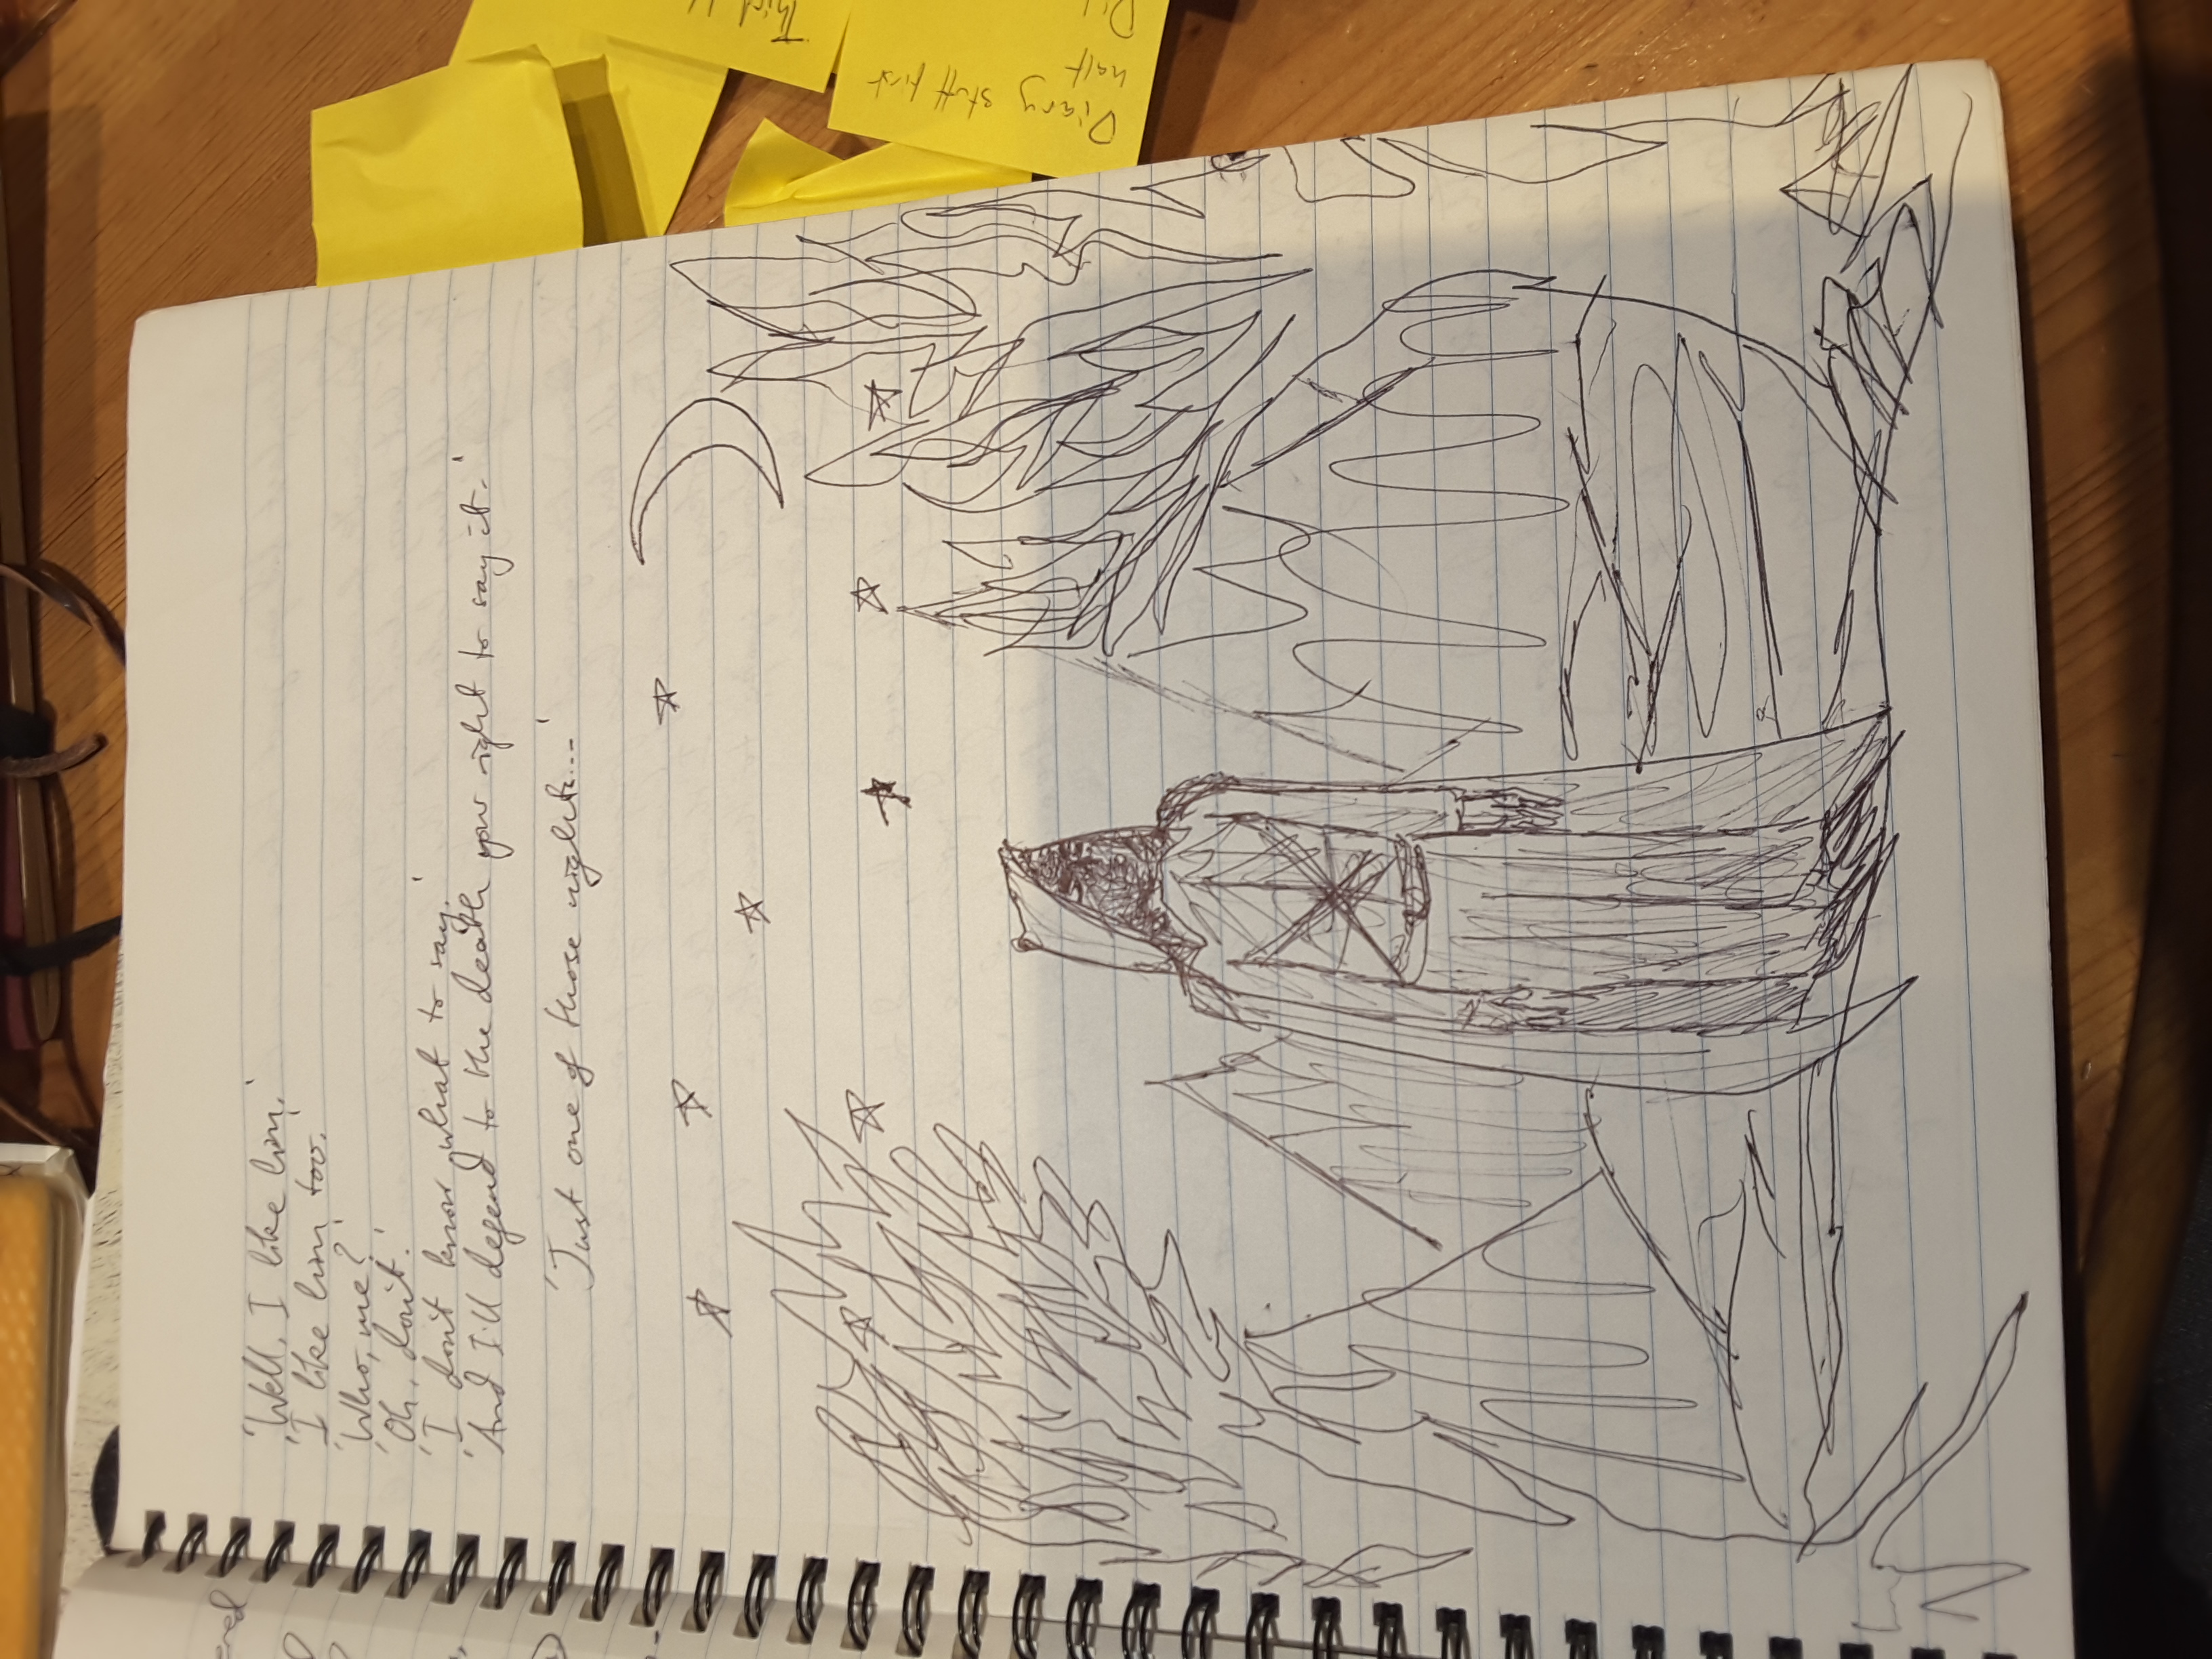 'Well, I like him.'
'I like him too.'
'Who, me?'
'Oh, don't.'
'I don't know what to say.'
'And I'll defend to the death your right to say it.'
'Just one of those nights...'
Third
Diary stuff first
half